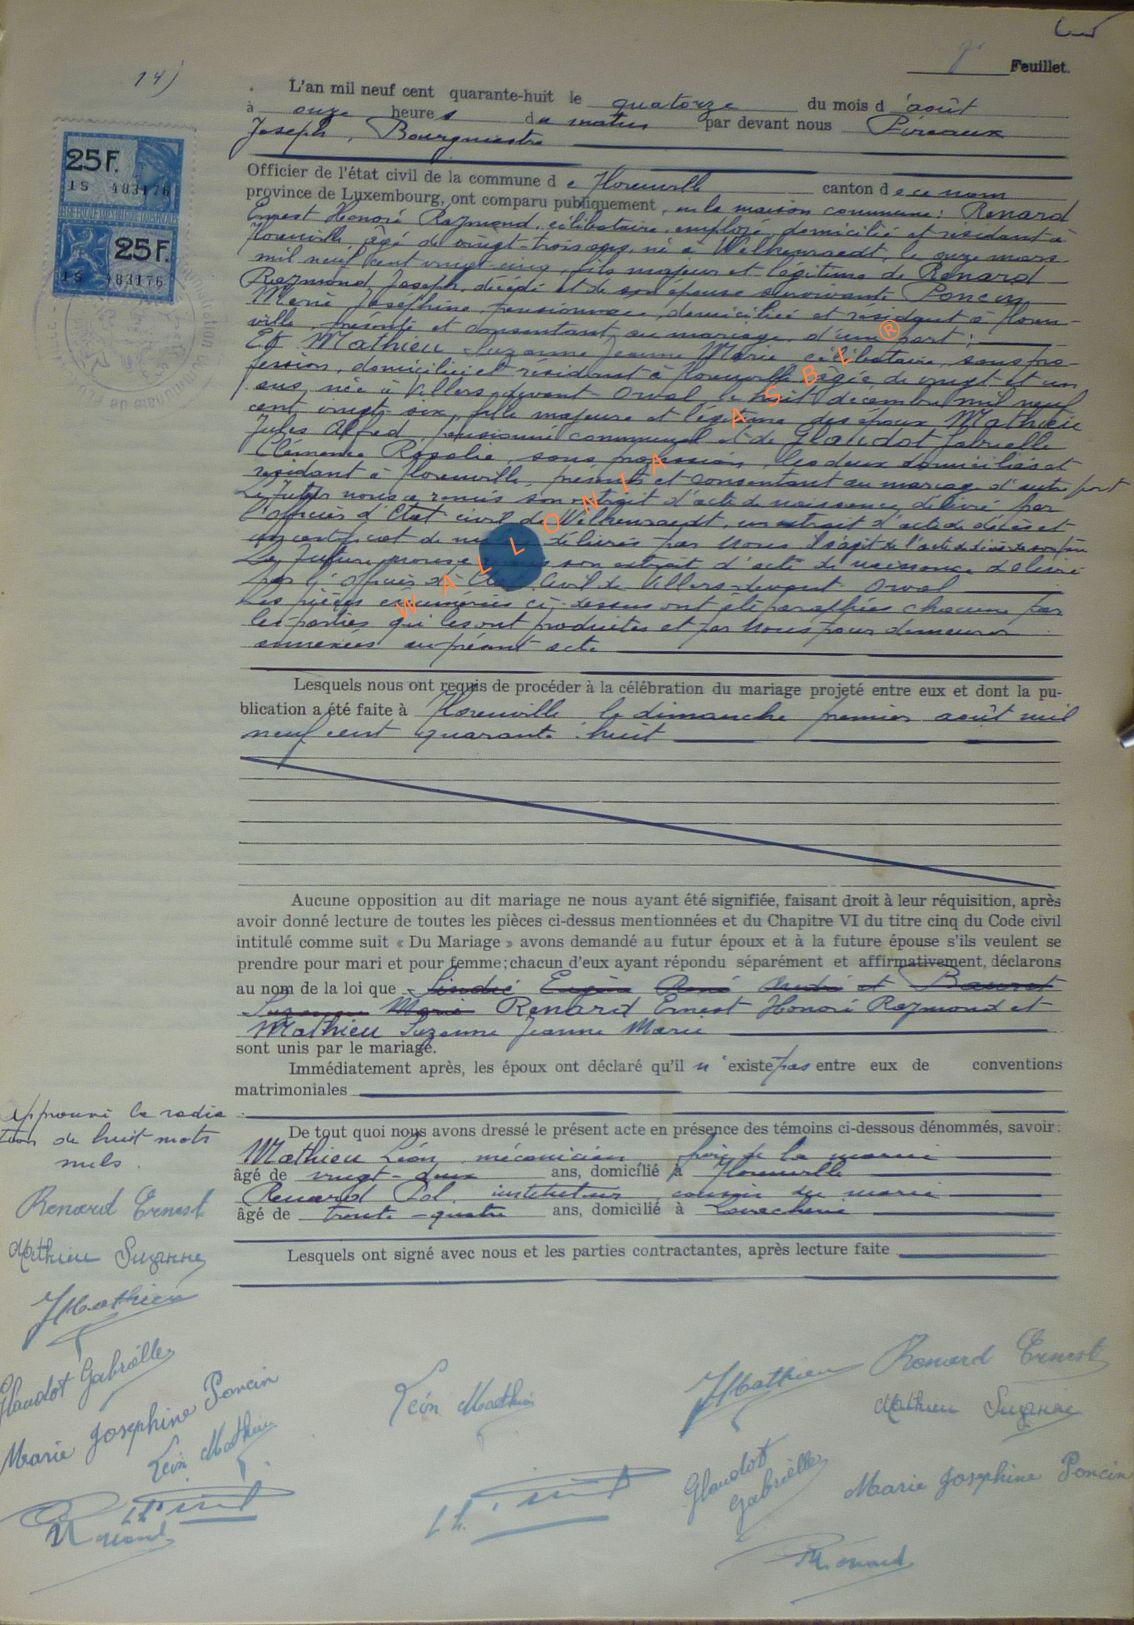 14)
Feuillet.
L'an mil neuf cent quarante-huit le quatorze du mois d'août
à onze heures du matin par devant nous Pireaux
Joseph, Bourgmestre
Officier de l'état civil de la commune de Florenville canton de ce nom
province de Luxembourg, ont comparu publiquement, en la maison commune: Renard
Ernest Honoré Raymond, célibataire, employé, domicilié et résidant à
Florenville, âgé de vingt-trois ans, né à Welkenraedt, le onze mars
mil neuf cent vingt cinq, fils majeur et légitime de Renard
Raymond Joseph, décédé et de son épouse survivante Poncin
Marie Josephine pensionnée, domiciliée et résidant à Floren-
ville, présente et consentant au mariage, d'une part;
Et Mathieu Suzanne Jeanne Marie célibataire, sans pro-
fession, domiciliée et résidant à Florenville, âgée de vingt et un
ans, née à Villers-devant-Orval, le huit décembre mil neuf
cent vingt-six, fille majeure et légitime des époux Mathieu
Jules Alfred, pensionné communal et de Glaudot Gabrielle
Clémence Rosalie, sans profession, les deux domiciliés et
résidant à Florenville, présents et consentant au mariage d'autre part
Le futur nous a remis son extrait d'acte de naissance délivré par
l'Officier d'Etat civil de Welkenraedt, un extrait d'acte de décès et
un certificat de délivrés par Nous il s'agit de l'acte de décès de son père
La future nous a remis son extrait d'acte de naissance délivré
par l'Officier de Civil de Villers-devant-Orval
Les pièces énumérées ci-dessus ont été paraphées chacune par
les parties qui les ont produites et par Nous pour demeurer
annexées au présent acte
Lesquels nous ont requis de procéder à la célébration du mariage projeté entre eux et dont la pu-
blication a été faite à Florenville le dimanche premier août mil
neuf cent quarante-huit
Aucune opposition au dit mariage ne nous ayant été signifiée, faisant droit à leur réquisition, après
avoir donné lecture de toutes les pièces ci-dessus mentionnées et du Chapitre VI du titre cinq du Code civil
intitulé comme suit « Du Mariage » avons demandé au futur époux et à la future épouse s'ils veulent se
prendre pour mari et pour femme; chacun d'eux ayant répondu séparément et affirmativement, déclarons
au nom de la loi que Eugène René André et
Suzanne Marie Renard Ernest Honoré Raymond et
Mathieu Suzanne Jeanne Marie
sont unis par le mariage.
Immédiatement après, les époux ont déclaré qu'il n'existe pas entre eux de conventions
matrimoniales
Approuvé la radia
tion de huit mots
nuls.
De tout quoi nous avons dressé le présent acte en présence des témoins ci-dessous dénommés, savoir:
Mathieu Léon, mécanicien, frère de la mariée
âgé de vingt-deux ans, domicilié à Florenville
Renard Pol, instituteur, cousin du marié
âgé de trente-quatre ans, domicilié à
Lesquels ont signé avec nous et les parties contractantes, après lecture faite
Renard Ernest
Mathieu Suzanne
JMathieu
Glaudot Gabrielle
Marie Josephine Poncin
Léon Mathieu
Renard
Léon Mathieu
JMathieu
Renard Ernest
Mathieu Suzanne
Glaudot
Gabrielle
Marie Josephine Poncin
Renard
25F.
1S 483176
25F.
1S 483176
WALLONIA ASBL ®